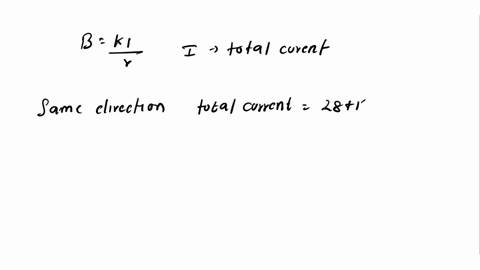 B = kI / r I → total curent
Same direction total current = 28+1